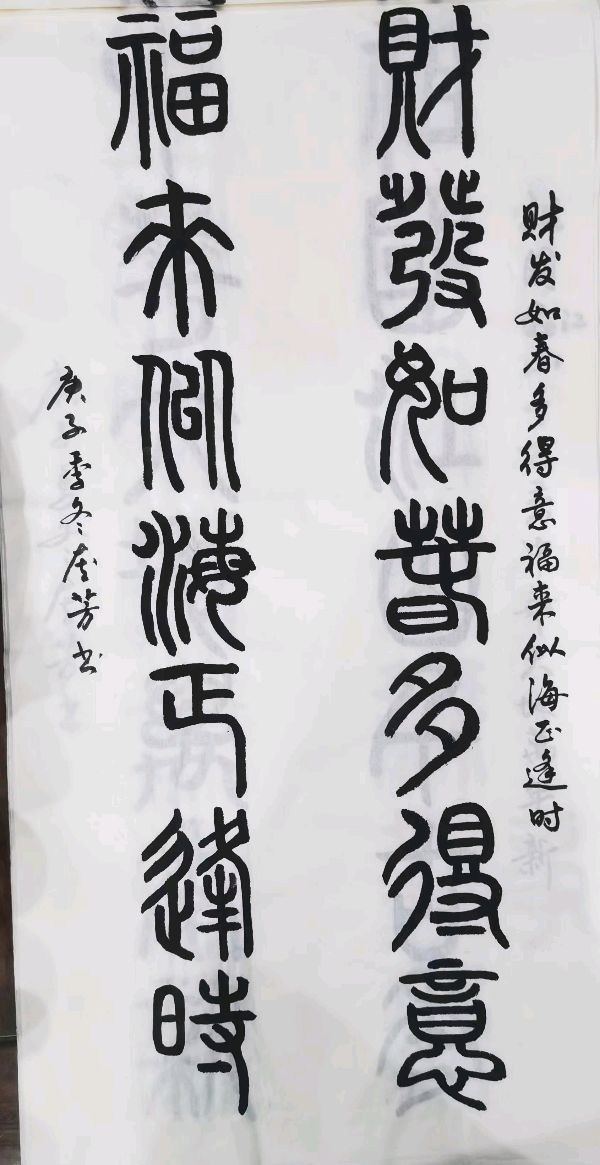 财发如春多得意福来似海正逢时
財發如春多得意
福来似海正逢時
庚子季冬
芳书